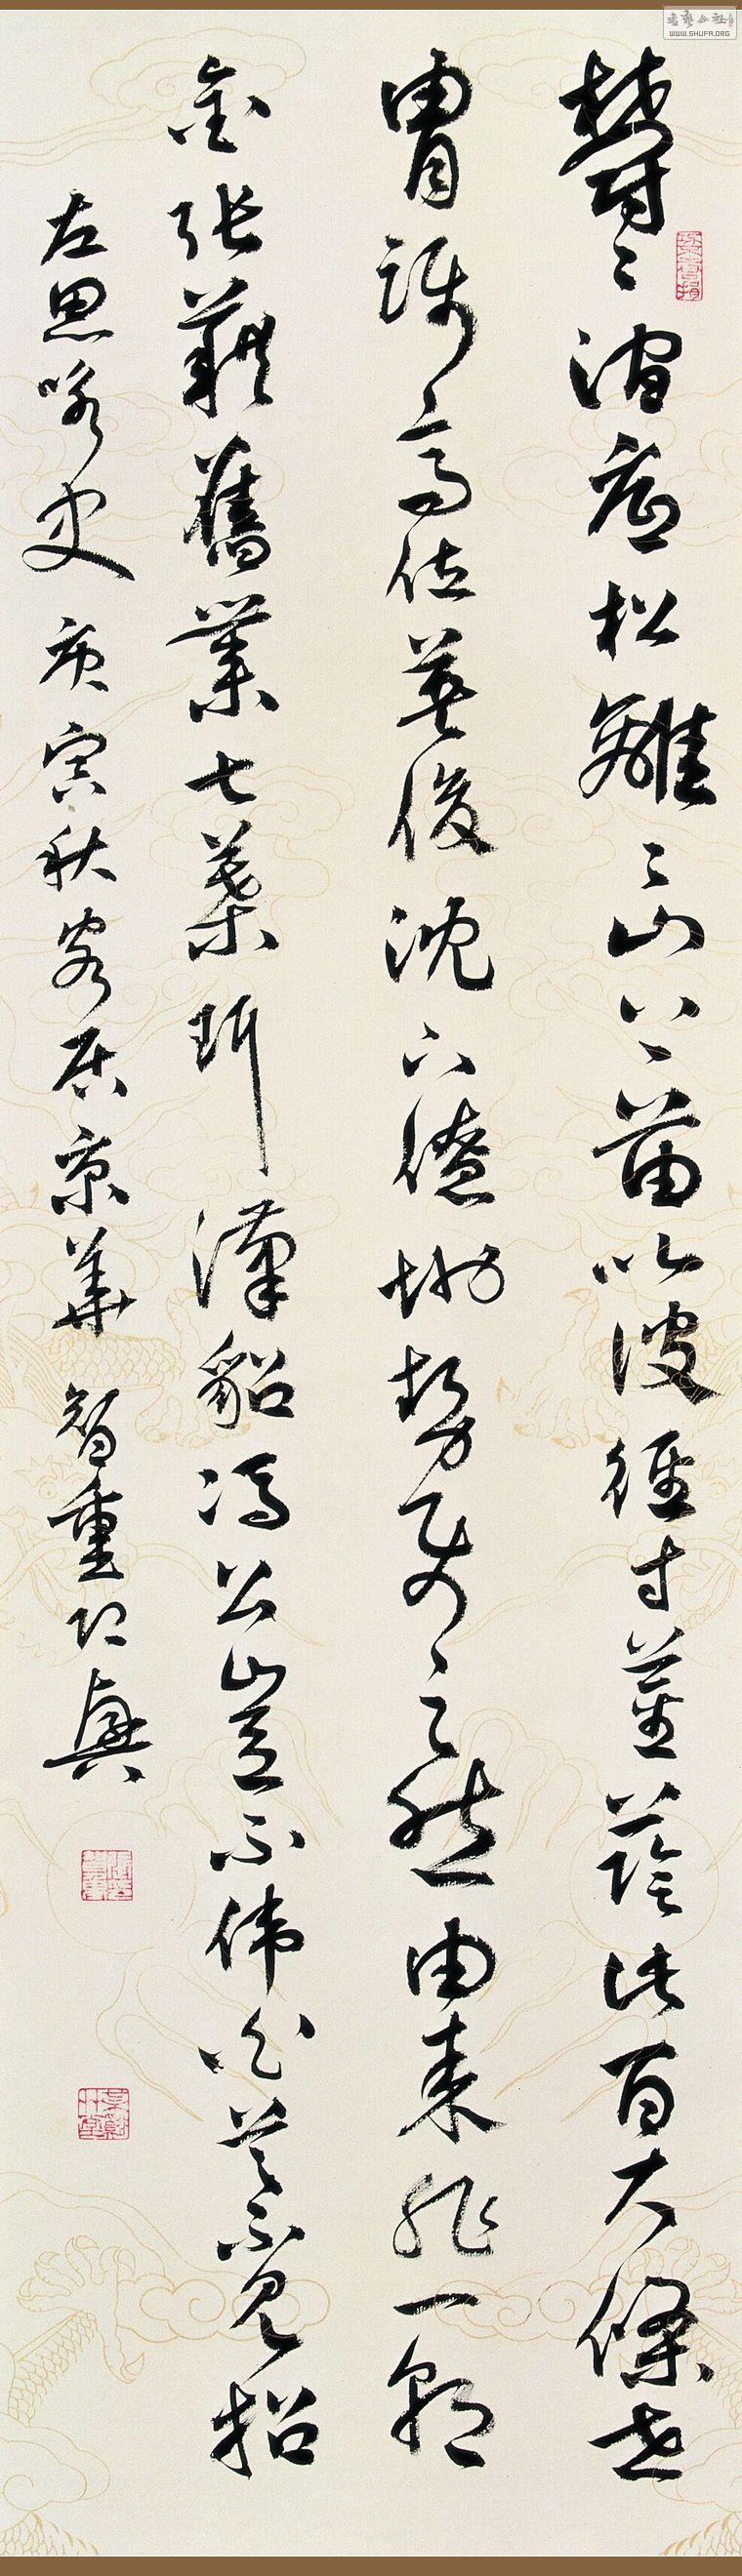 書藝公社
WWW.SHUFA.ORG
鬱〻澗底松離〻山上苗以彼徑寸莖蔭此百尺條世
胄躡高位英俊沈下僚地勢使之然由來非一朝
金張藉舊業七葉珥漢貂馮公豈不偉白首不見招
左思咏史 庚寅秋客居京華 智重